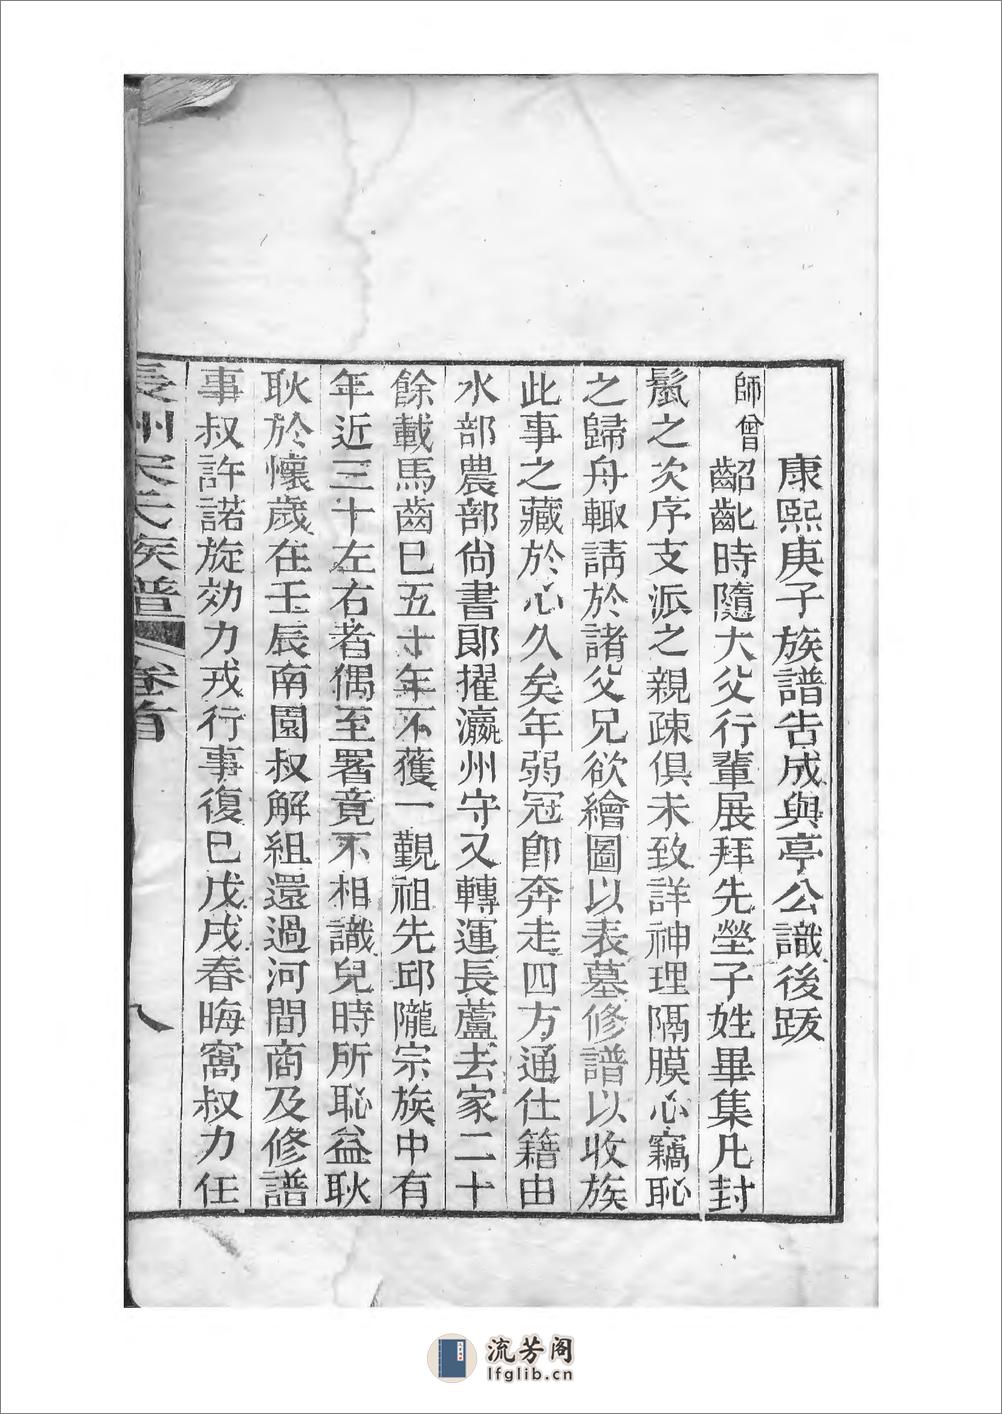 康熙庚子族譜告成與亭公識後跋
師曾齠齔時隨大父行輩展拜先塋子姓畢集凡封
鬣之次序支派之親疎俱未致詳神理隔膜心竊恥
之歸舟輙請於諸父兄欲繪圖以表墓修譜以收族
此事之藏於心久矣年弱冠卽奔走四方通仕籍由
水部農部尙書郞擢瀛州守又轉運長蘆去家二十
餘載馬齒已五十年不獲一覲祖先邱隴宗族中有
年近三十左右者偶至署竟不相識兒時所恥益耿
耿於懷歲在壬辰南園叔解組還過河間商及修譜
事叔許諾旋効力戎行事復已戊戌春晦窩叔力任
長州宋氏族譜 卷首 八
流芳阁
lfglib.cn